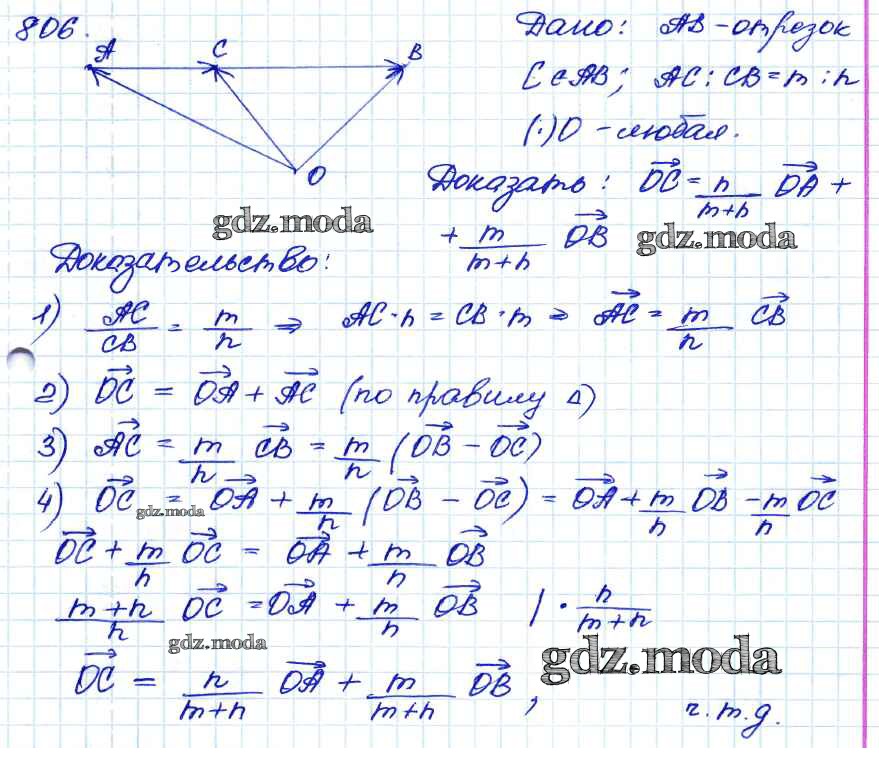 806.
A C B
O
Дано: AB - отрезок
C ∈ AB; AC : CB = m : n
(·) O - любая.
Доказать: OC→ = n/(m+n) OA→ +
+ m/(m+n) OB→
gdz.moda gdz.moda
Доказательство:
1) AC/CB = m/n ⇒ AC · n = CB · m ⇒ AC→ = m/n CB→
2) OC→ = OA→ + AC→ (по правилу Δ)
3) AC→ = m/n CB→ = m/n (OB→ - OC→)
4) OC→ = OA→ + m/n (OB→ - OC→) = OA→ + m/n OB→ - m/n OC→
gdz.moda
OC→ + m/n OC→ = OA→ + m/n OB→
(m+n)/n OC→ = OA→ + m/n OB→ | · n/(m+n)
gdz.moda
gdz.moda
OC→ = n/(m+n) OA→ + m/(m+n) OB→, ч.т.д.